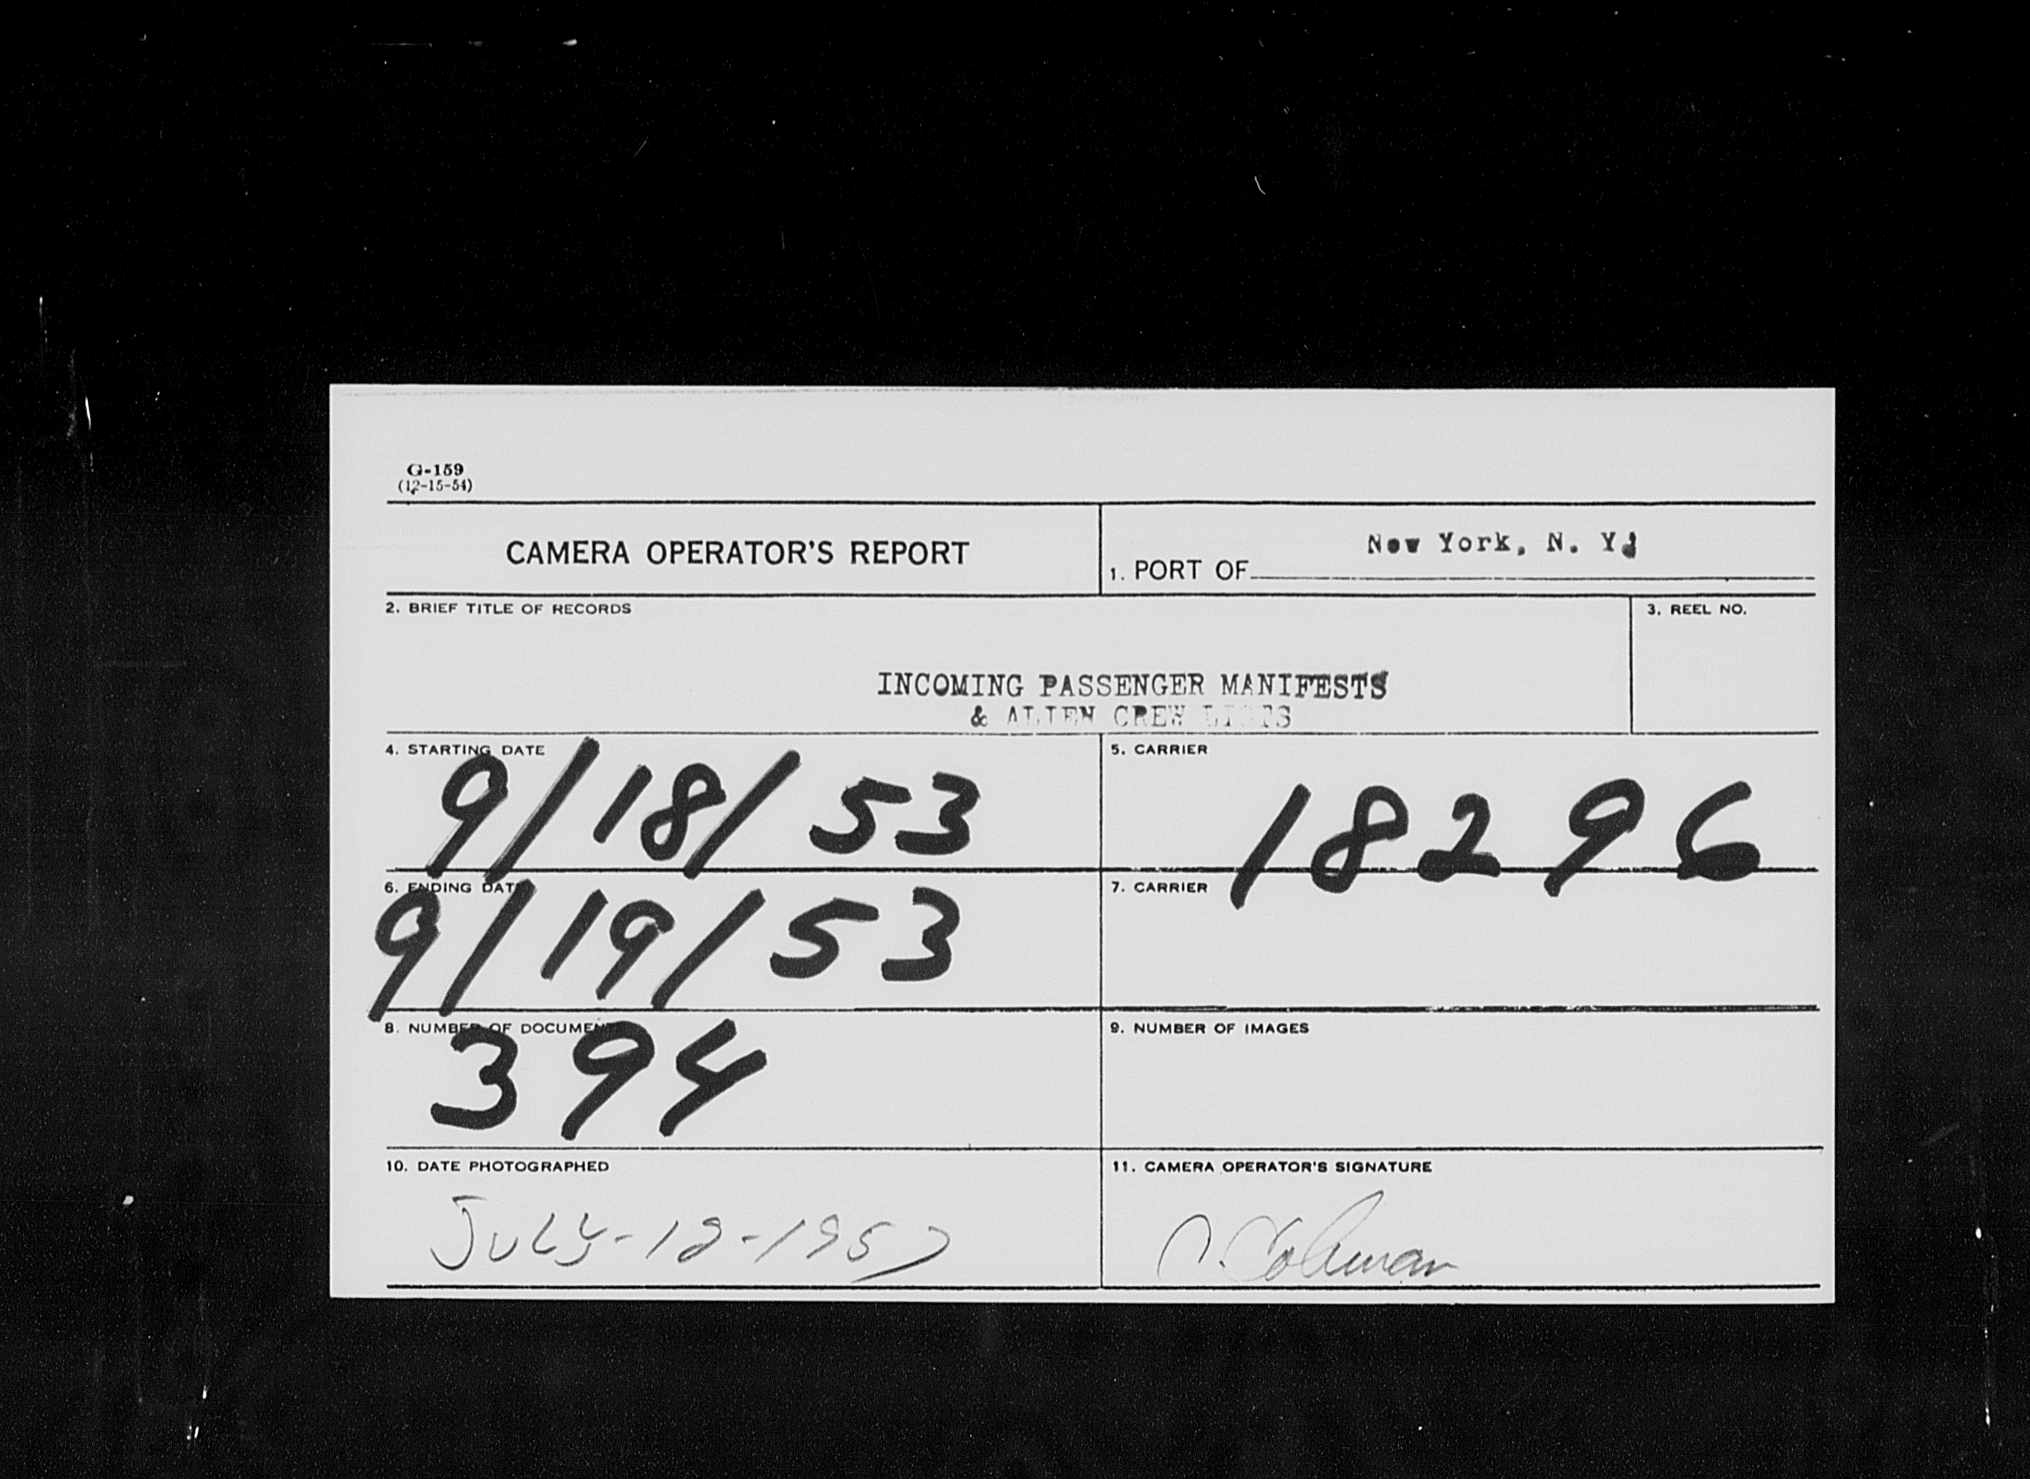 G-159
(12-15-54)
CAMERA OPERATOR'S REPORT
1. PORT OF New York, N. Y.
2. BRIEF TITLE OF RECORDS
3. REEL NO.
INCOMING PASSENGER MANIFESTS
& ALIEN CREW LISTS
4. STARTING DATE
9/18/53
5. CARRIER
18296
6. ENDING DATE
9/19/53
7. CARRIER
8. NUMBER OF DOCUMENTS
394
9. NUMBER OF IMAGES
10. DATE PHOTOGRAPHED
JULY-12-1957
11. CAMERA OPERATOR'S SIGNATURE